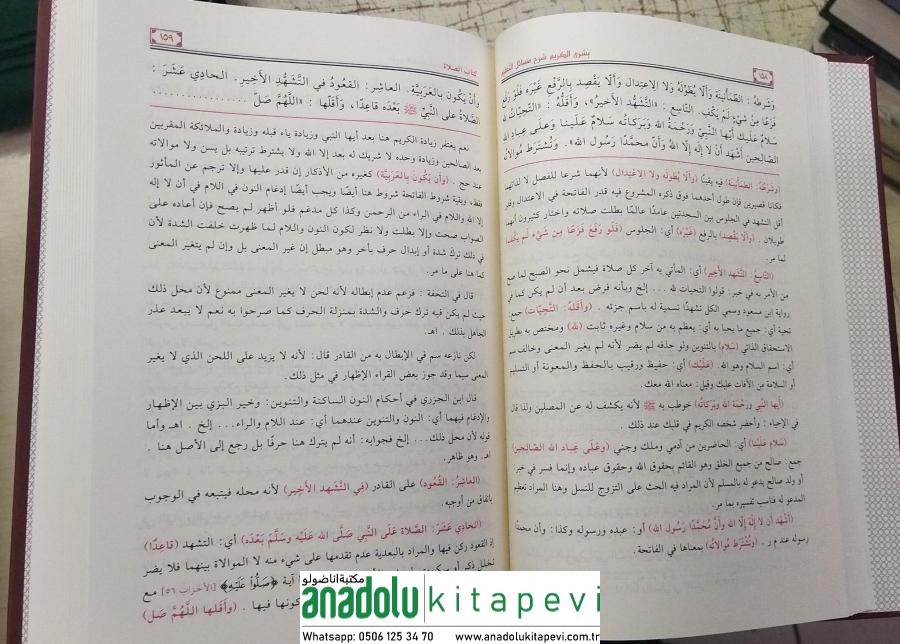 بشرى الكريم شرح مسائل التعليم
١٥٨
وَشَرْطُهُ: الطُّمَأْنِينَةُ وَأَلَّا يُطَوِّلَهُ وَلَا الِاعْتِدَالَ وَأَلَّا يَقْصِدَ بِالرَّفْعِ غَيْرَهُ فَلَوْ رَفَعَ
فَزَعًا مِنْ شَيْءٍ لَمْ يَكْفِ. التَّاسِعُ: التَّشَهُّدُ الأَخِيرُ، وَأَقَلُّهُ: «التَّحِيَّاتُ لِلَّهِ
سَلَامٌ عَلَيْكَ أَيُّهَا النَّبِيُّ وَرَحْمَةُ اللهِ وَبَرَكَاتُهُ سَلَامٌ عَلَيْنَا وَعَلَى عِبَادِ اللهِ
الصَّالِحِينَ أَشْهَدُ أَنْ لَا إِلَهَ إِلَّا اللهُ وَأَنَّ مُحَمَّدًا رَسُولُ اللهِ». وَتُشْتَرَطُ مُوَالَاتُهُ
(وَشَرْطُهُ: الطُّمَأْنِينَةُ) فيه يقينًا (وَأَلَّا يُطَوِّلَهُ ولا الاعْتِدَالَ) لأنهما شرعا للفصل لا لذاتهما
فكانا قصيرين فإن طول أحدهما فوق ذكره المشروع فيه قدر الفاتحة في الاعتدال وقدر
أقل التشهد في الجلوس بين السجدتين عامدًا عالمًا بطلت صلاته واختار كثيرون أنهما
طويلان. (وَأَلَّا يَقْصِدَ) بالرفع (غَيْرَهُ) أي: الجلوس (فَلَوْ رَفَعَ فَزَعًا مِنْ شَيْءٍ لَمْ يَكْفِ)
لما مر.
(التَّاسِعُ: التَّشَهُّدُ الأَخِيرُ) أي: المأتي به آخر كل صلاة فيشمل نحو الصبح لما صح
من الأمر به في خبر: قولوا التحيات لله ... إلخ وبأنه فرض بعد أن لم يكن كما في
رواية ابن مسعود وسمي الكل تشهدًا تسمية له باسم جزئه. (وأقله: التَّحِيَّاتُ) جمع
تحية أي: جميع ما يحيا به أي: يعظم به من سلام وغيره ثابت (لله) ومختص به بطريق
الاستحقاق الذاتي (سَلَام) بالتنوين ولو حذفه لم يضر لأنه لم يغير المعنى وخالف سم
أي: اسم السلام وهو الله. (عَلَيْكَ) أي: حفيظ ورقيب بالحفظ والمعونة أو التسليم
أو السلامة من الآفات عليك وقيل: معناه الله معك.
(أيها النَّبِيُّ وَرَحْمَةُ اللهِ وَبَرَكَاتُهُ) خوطب به ﷺ لأنه يكشف له عن المصلين ولذا قال
في الإحياء: وأحضر شخصه الكريم في قلبك عند ذلك.
(سَلَامٌ عَلَيْنَا) أي: الحاضرين من آدمي وملك وجني (وَعَلَى عِبَادِ اللهِ الصَّالِحِينَ)
جمع: صالح من جميع الخلق وهو القائم بحقوق الله وحقوق عباده وإنما فسر في خبر:
أو ولد صالح يدعو له بالمسلم لأن المراد فيه الحث على التزوج للنسل وهنا المراد تعظيم
المدعو له فناسب تفسيره بما مر.
(أَشْهَدُ أَنْ لا إلَهَ إلَّا اللهُ وَأَنَّ مُحَمَّدًا رَسُولُ الله) أو: عبده ورسوله وكذا: وأن محمدًا
رسوله عند م ر. (وَتُشْتَرَطُ مُوالَاتُه) بمعناها في الفاتحة.
كتاب الصلاة
١٥٩
وَأَنْ يَكُونَ بِالعَرَبِيَّةِ. العاشِرُ: القُعُودُ فِي التَّشَهُّدِ الأَخِيرِ. الحادِي عَشَرَ:
الصَّلاةُ عَلَى النَّبِيِّ ﷺ بَعْدَهُ قَاعِدًا، وَأَقَلُّهَا: «اللَّهُمَّ صَلِّ ..............
نعم يغتفر زيادة الكريم هنا بعد أيها النبي وزيادة ياء قبله وزيادة والملائكة المقربين
بعد الصالحين وزيادة وحده لا شريك له بعد إلا الله ولا يشترط ترتيبه بل يسن ولا موالاته
عند حج. (وَأَنْ يَكُونَ بِالعَرَبِيَّةِ) كغيره من الأذكار إن قدر عليها وإلا ترجم عن المأثور
فقط، وبقية شروط الفاتحة شروط هنا أيضًا ويجب أيضًا إدغام النون في اللام في أن لا إله
إلا الله واللام في الراء من الرحمن وكذا كل مدغم فلو أظهر لم يصح فإن أعاده على
الصواب صحت وإلا بطلت ولا نظر لكون النون واللام لما ظهرت خلفت الشدة لأن
في ذلك ترك شدة أو إبدال حرف بآخر وهو مبطل إن غير المعنى بل وإن لم يتغير المعنى
كما هنا على ما مر.
قال في التحفة: فزعم عدم إبطاله لأنه لحن لا يغير المعنى ممنوع لأن محل ذلك
حيث لم يكن فيه ترك حرف والشدة بمنزلة الحرف كما صرحوا به نعم لا يبعد عذر
الجاهل بذلك. اهـ.
لكن نازعه سم في الإبطال به من القادر قال: لأنه لا يزيد على اللحن الذي لا يغير
المعنى سيما وقد جوز بعض القراء الإظهار في مثل ذلك.
قال ابن الجزري في أحكام النون الساكنة والتنوين: وخير البزي بين الإظهار
والإدغام فيهما أي: النون والتنوين عندهما أي: عند اللام والراء... إلخ. اهـ وأما
قوله لأن محل ذلك... إلخ فجوابه: أنه لم يترك هنا حرفًا بل رجع إلى الأصل هنا.
اهـ. وهو ظاهر.
(العاشِرُ: القُعُود) على القادر (فِي التَّشَهد الأَخِيرِ) لأنه محله فيتبعه في الوجوب
باتفاق من أوجبه.
(الحَادِي عَشَرَ: الصَّلَاة عَلَى النَّبِيِّ صَلَّى الله عَلَيْهِ وسَلَّمَ بَعْدَهُ) أي: التشهد (قاعِدًا)
إذ القعود ركن فيها والمراد بالبعدية عدم تقدمها على شيء منه لا الموالاة بينهما فلا يضر
تخلل ذكر أو سكوت
آية ﴿صَلُّوا عَلَيْهِ﴾ [الأحزاب ٥٦] مع
كونها فيها. (وَأَقَلها اللَّهُمَّ صَل)
مكتبة اناضولو
anadolu kitapevi
Whatsapp: 0506 125 34 70 www.anadolukitapevi.com.tr